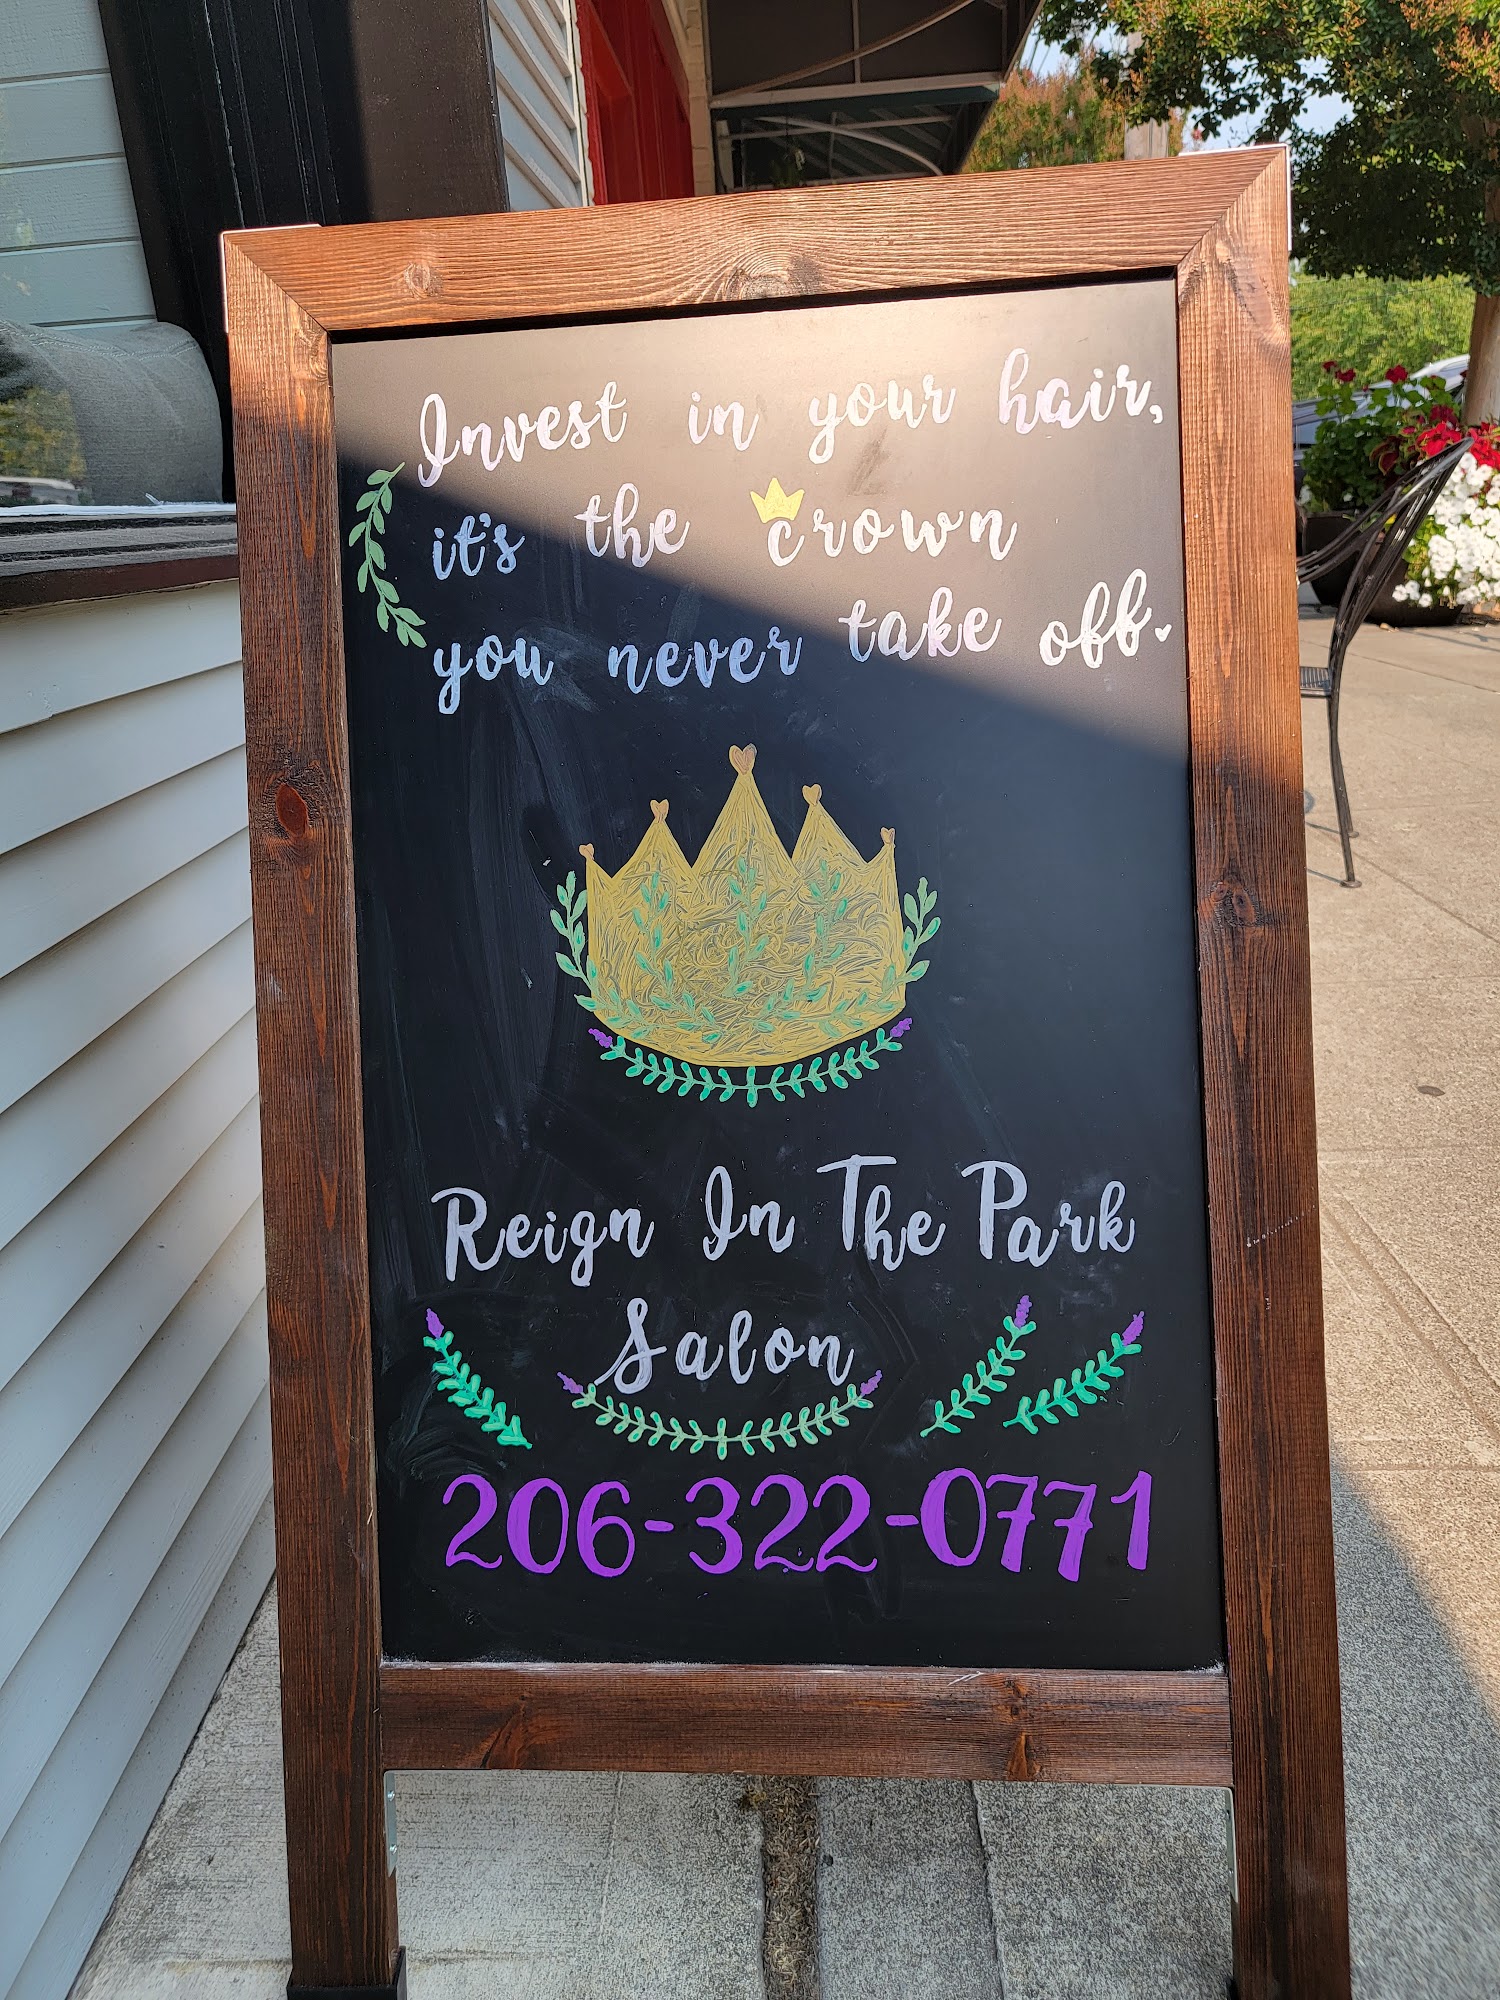 Invest in your hair,
it's the crown
you never take off.
Reign In The Park
Salon
206-322-0771